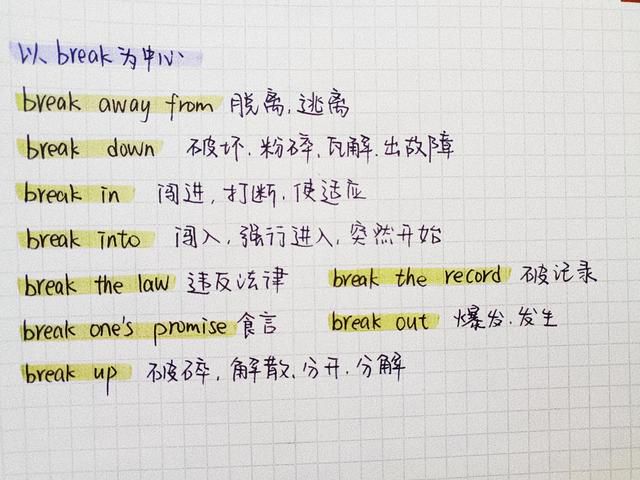 以 break 为中心
break away from 脱离,逃离
break down 破坏,粉碎,瓦解,出故障
break in 闯进,打断,使适应
break into 闯入,强行进入,突然开始
break the law 违反法律 break the record 破记录
break one's promise 食言 break out 爆发,发生
break up 破碎,解散,分开,分解